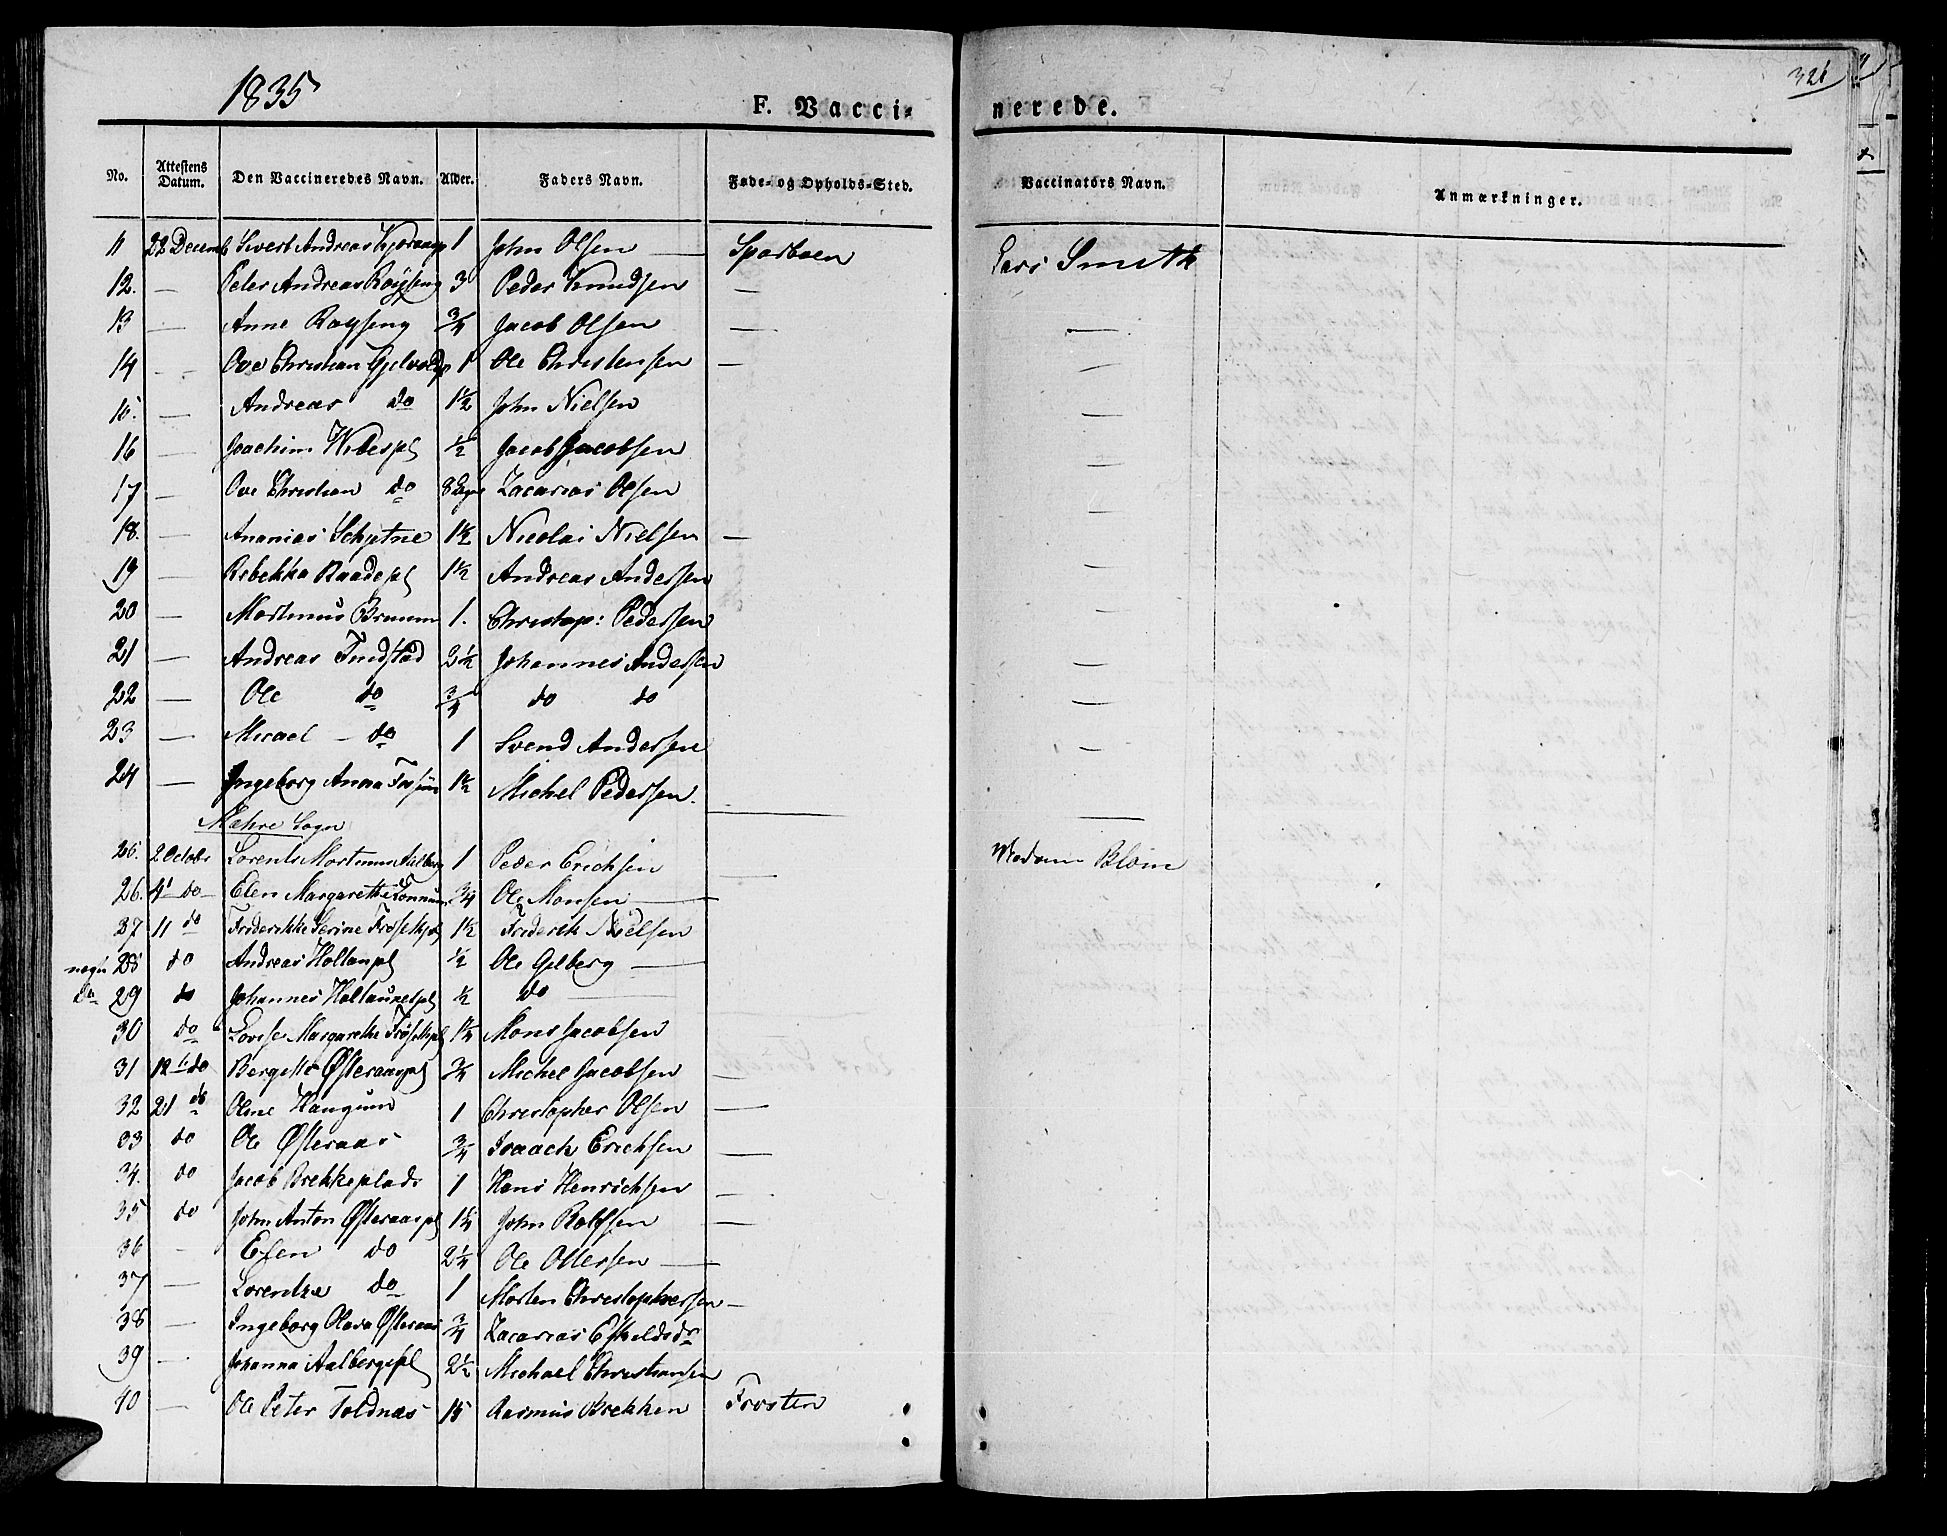 1835
321
F. Vaccinerede.
No. Attestens Datum. Den Vaccineredes Navn. Alder. Faders Navn. Føde- og Opholds-Sted. Vaccinators Navn. Anmærkninger.
11 22 Decemb Sivert Andreas 1 John Olsen — Sparboen Lars Smith
12. — Peter Andreas Røysing 3 Peder Knudsen —
13 — Anne Røysing 3/4 Jacob Olsen — —
14 — Ove Christian 1 Ole Christensen — —
15. — Andreas do 1½ John Nielsen —
16 — Joachim Wibespl ½ Jacob Jacobsen —
17 — Ove Christian do 8 Zacarias Olsen —
18. — Ananias Schjetne 1½ Nicolai Nielsen — —
19 — Rebekka Raadepl 1½ Andreas Andersen —
20 — Mortinus 1. Christop: Pedersen —
21 — Andreas Tudstad 2½ Johannes Andersen —
22 — Ole do 3/4 do do —
23 — Micael — do 1 Svend Andersen —
24 — Ingeborg Anna 1½ Michel Pedersen. — —
Mæhre Sogn
25. 2 Octobr Lorents Mortinus Aalberg 1 Peder Erichsen — Madam Blom
26. 4 do Elen Margarethe 3/4 Ole Monsen —
27 11 do Friderikke Serine 1½ Friderik Nielsen
28 do Andreas ½ Ole Gilberg —
do 29 do Johannes ½ do —
30 do Lovise Margarethe 1¼ Mons Jacobsen
31 12 do Bergitte Østeraaspl 3/4 Michel Jacobsen —
32 21 do Oline Haugum 1 Christopher Olsen —
33 do Ole Østeraas 3/4 Isaach Erichsen —
34. do Jacob Brekkeplads 1 Hans Henrichsen —
35 do John Anton Østeraaspl 1¼ John Rolfsen —
36 — Elen do 2¼ Ole Ottersen —
37 — Lorentze do 1 Morten Christophersen —
38 — Ingeborg Olava Østeraas 3/4 Zacarias
39 — Johanna Aalbergspl 2½ Michael Christiansen
40 — Ole Peter Toldnæs 15 Rasmus Brekken Frosten